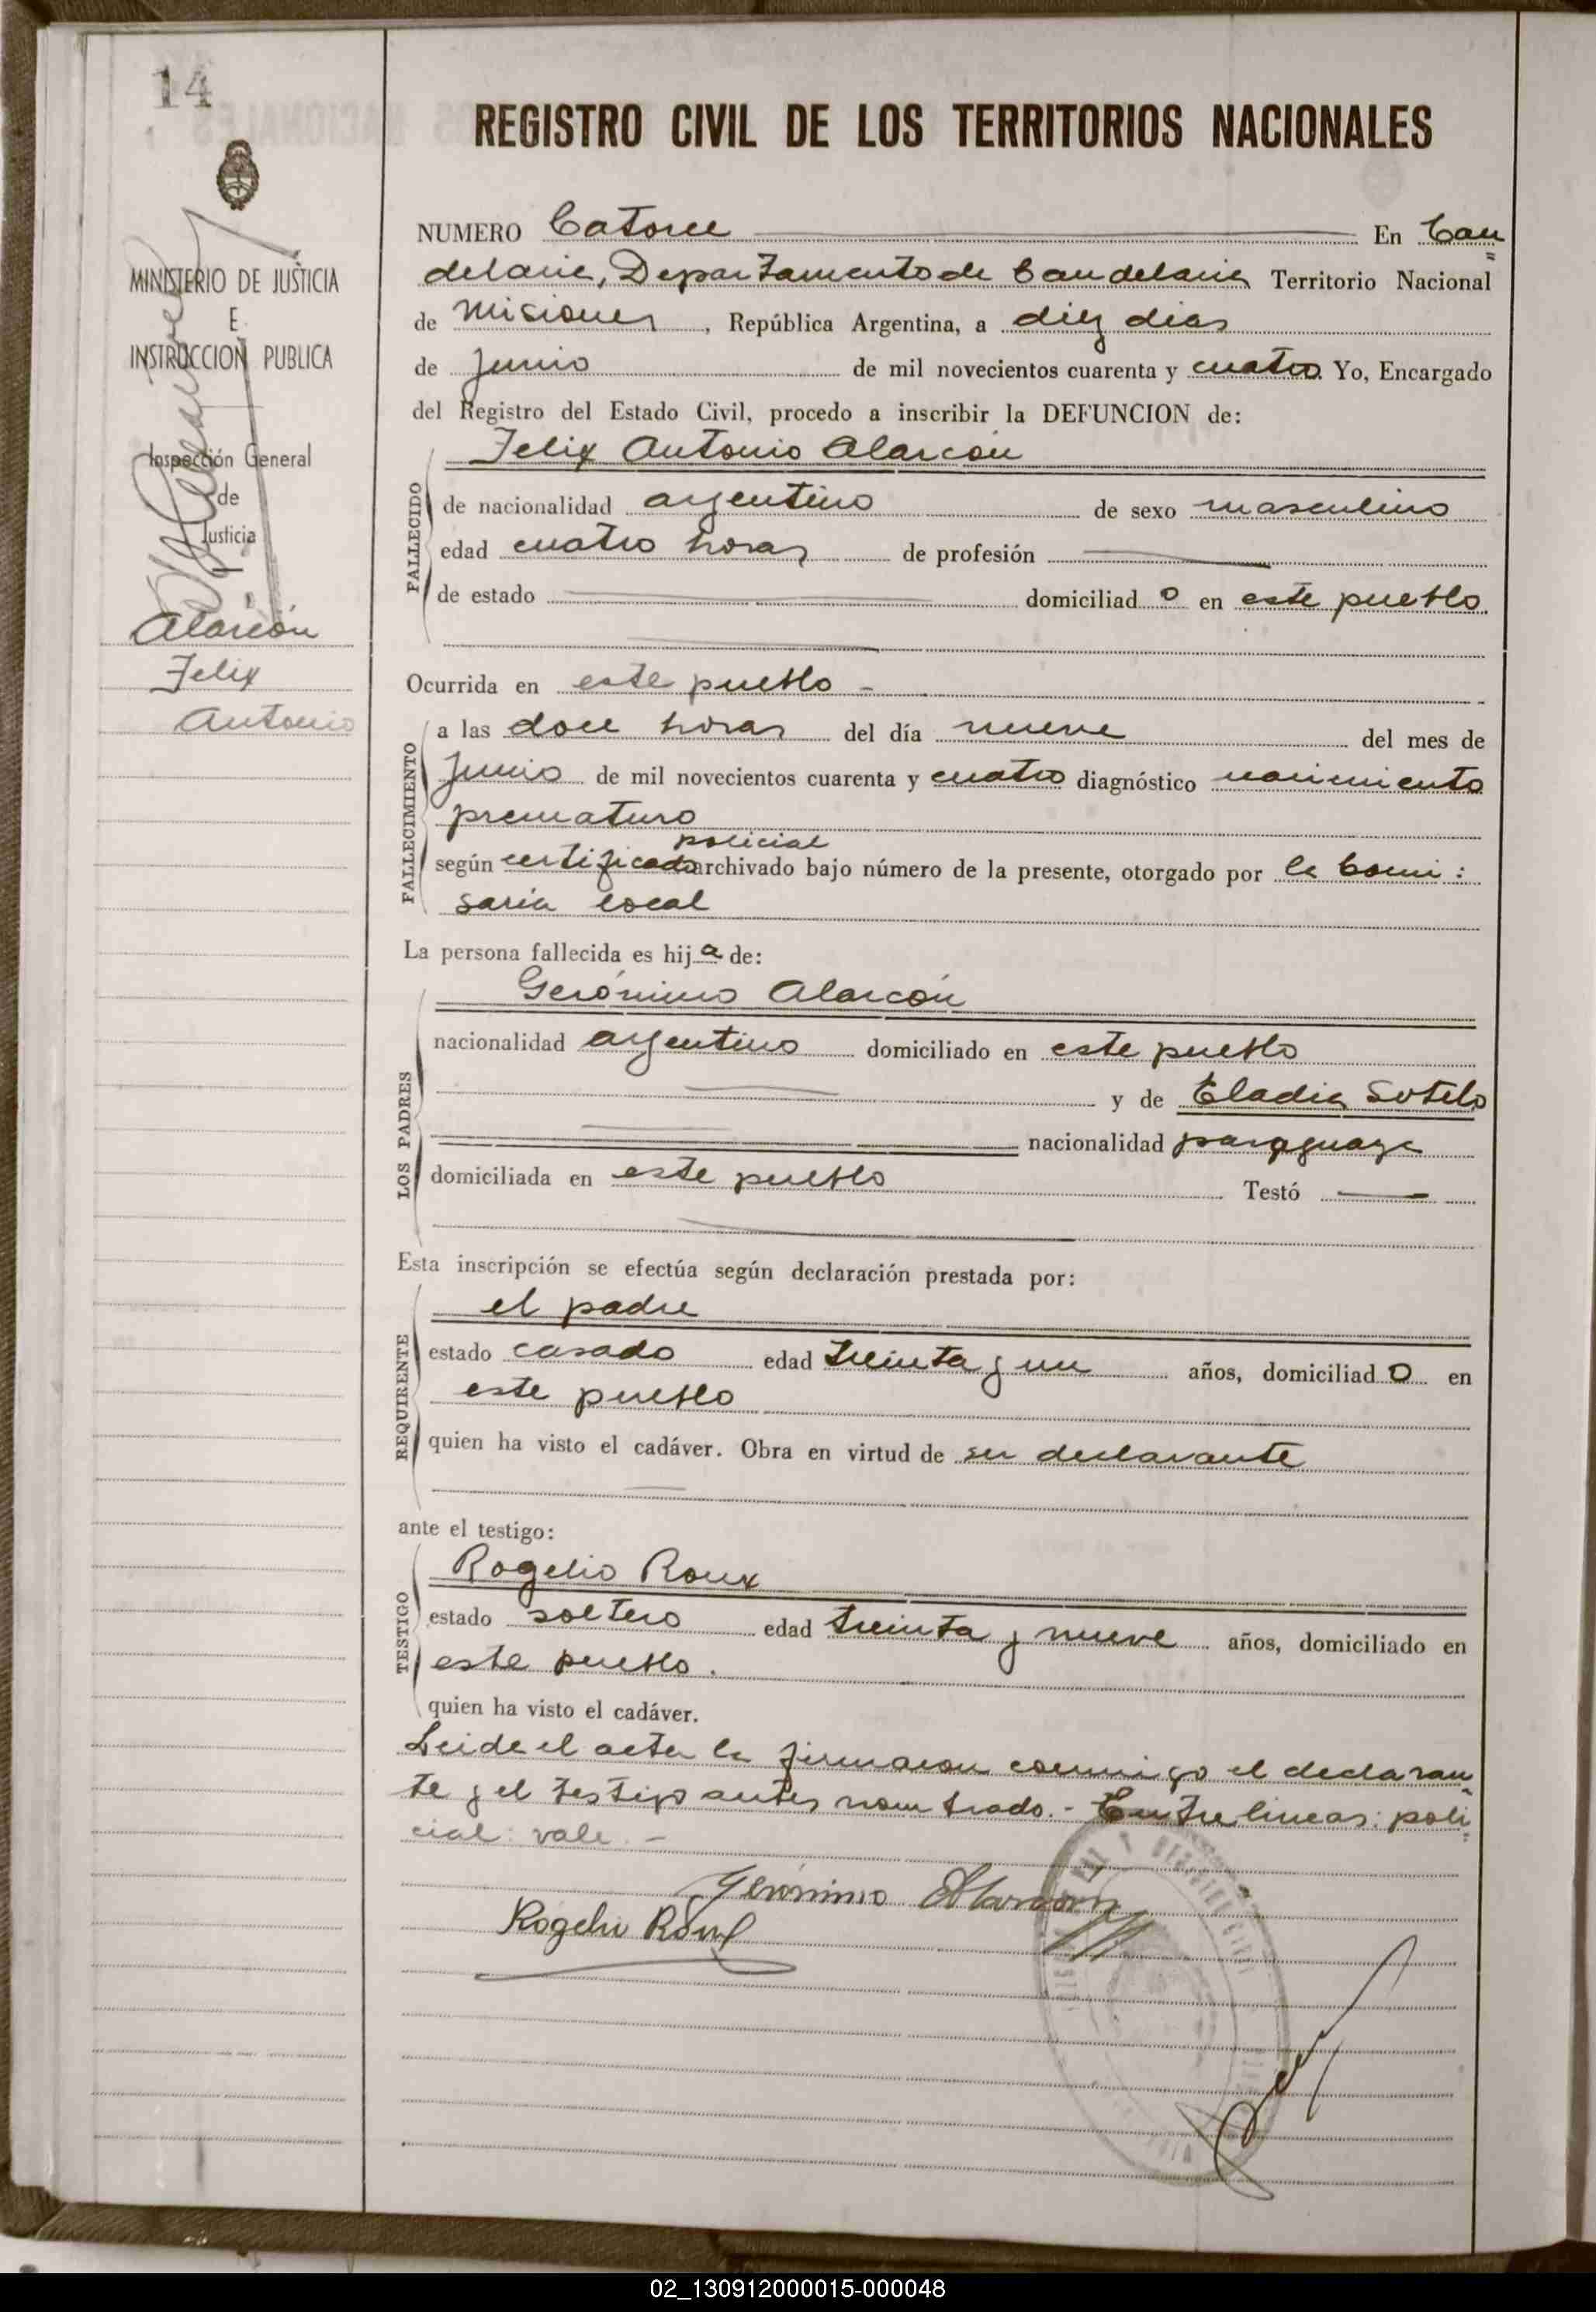 14
MINISTERIO DE JUSTICIA
E
INSTRUCCION PUBLICA
Inspección General
de
Justicia
Alarcón
Felix
Antonio
REGISTRO CIVIL DE LOS TERRITORIOS NACIONALES
NUMERO Catorce En Can=
delaria, Departamento de Candelaria Territorio Nacional
de Misiones, República Argentina, a diez dias
de Junio de mil novecientos cuarenta y cuatro Yo, Encargado
del Registro del Estado Civil, procedo a inscribir la DEFUNCION de:
Felix Antonio Alarcón
FALLECIDO
de nacionalidad argentino de sexo masculino
edad cuatro horas de profesión
de estado domiciliad o en este pueblo
Ocurrida en este pueblo -
FALLECIMIENTO
a las doce horas del día nueve del mes de
Junio de mil novecientos cuarenta y cuatro diagnóstico nacimiento
prematuro
policial
según certificado archivado bajo número de la presente, otorgado por la Comi:
saría local
La persona fallecida es hij a de:
Gerónimo Alarcón
LOS PADRES
nacionalidad argentino domiciliado en este pueblo
y de Eladia Sotelo
nacionalidad paraguaya
domiciliada en este pueblo Testó
Esta inscripción se efectúa según declaración prestada por:
el padre
REQUIRENTE
estado casado edad treinta y un años, domiciliad o en
este pueblo
quien ha visto el cadáver. Obra en virtud de ser declarante
ante el testigo:
Rogelio Roux
TESTIGO
estado soltero edad treinta y nueve años, domiciliado en
este pueblo.
quien ha visto el cadáver.
Leida el acta la firmaron conmigo el declaran=
te y el testigo antes nombrado.- Entre lineas: poli=
cial: vale.-
Gerónimo Alarcón
Rogelio Roux
02_130912000015-000048